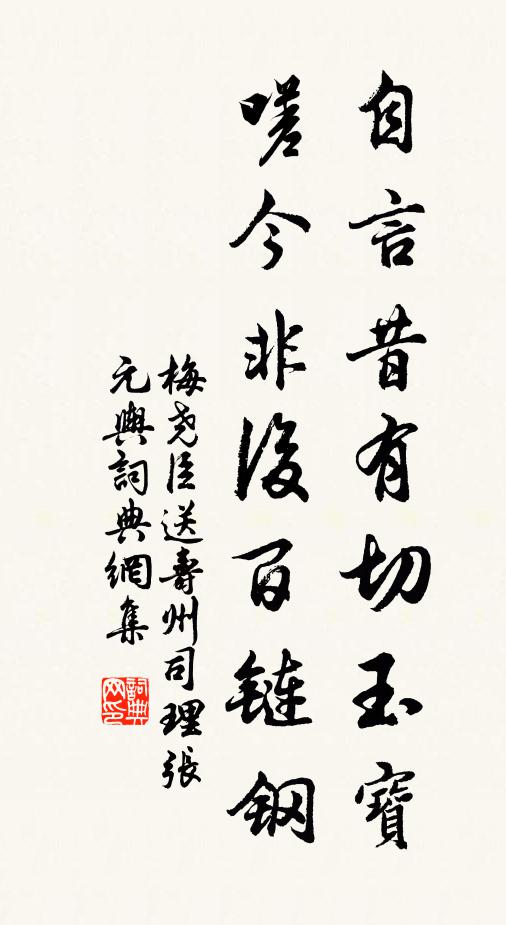 自言昔有切玉寶
嗟今非復百鏈鋼
梅堯臣送壽州司理張
元輿詞典網集
詞典
网印